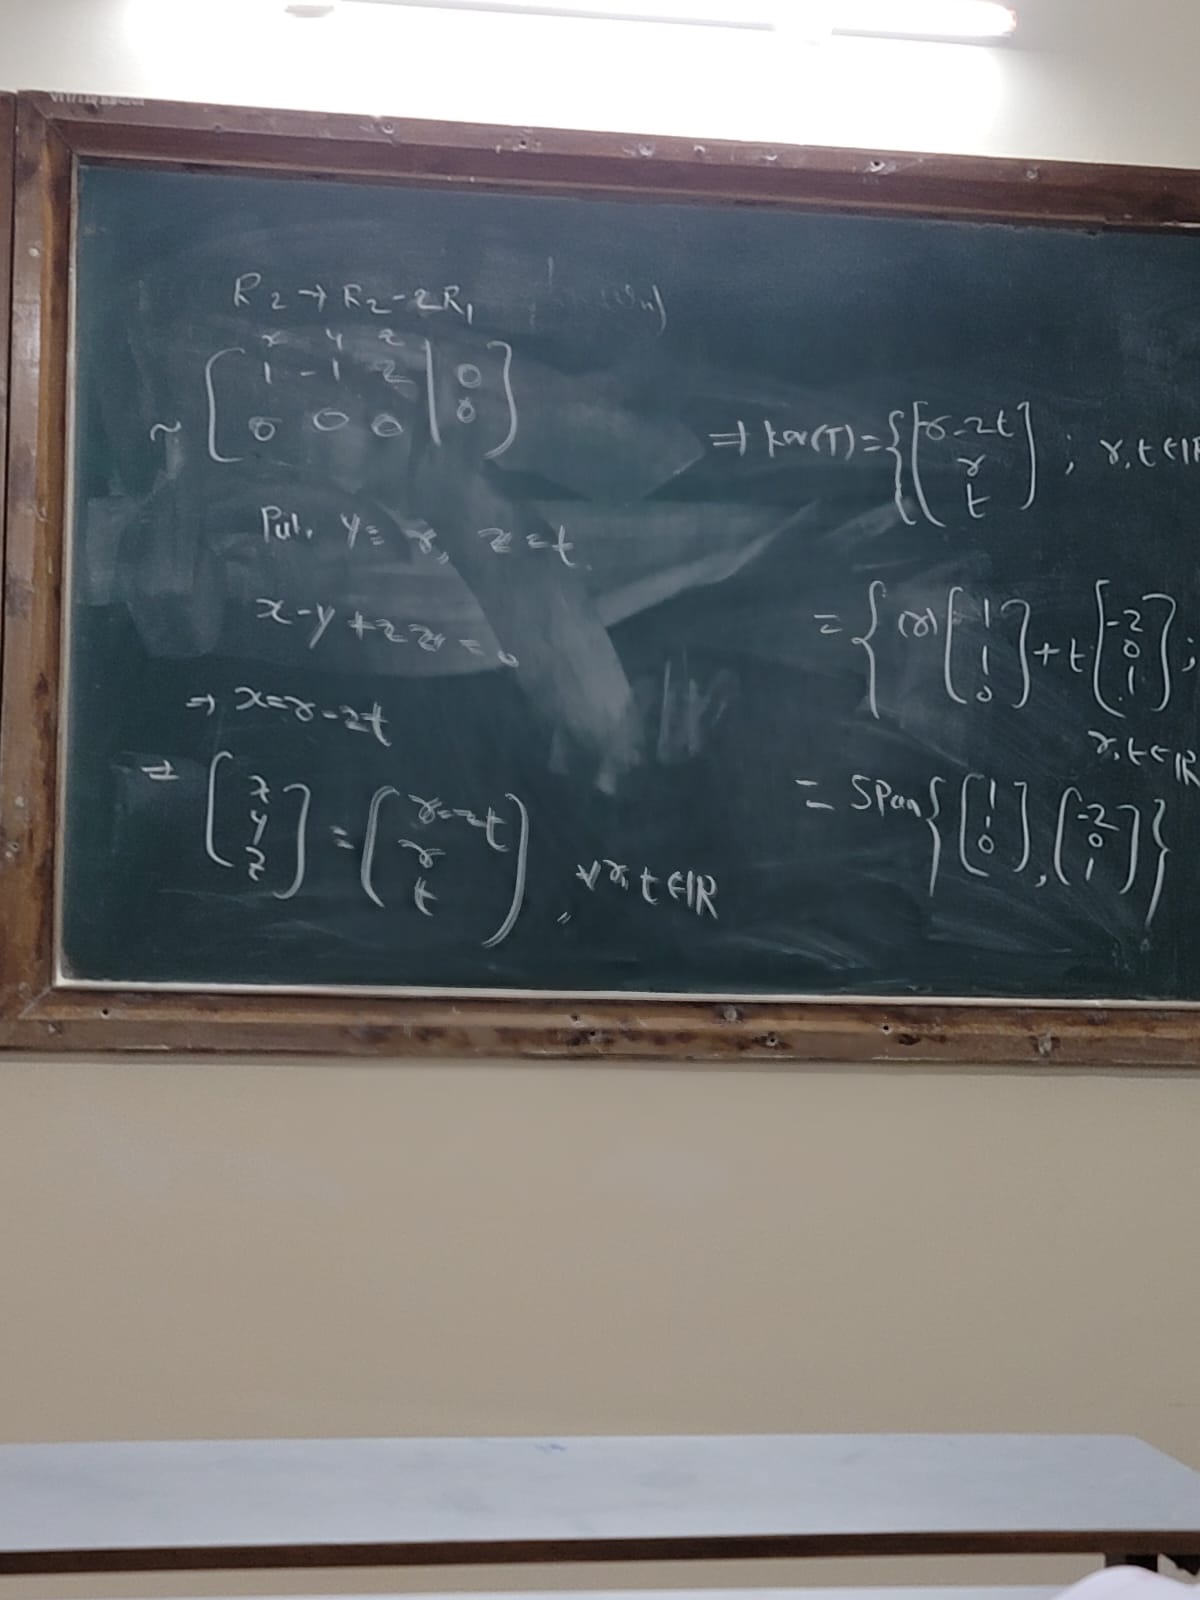 R2 → R2 - 2R1
x y z
~ [ 1 -1 2 | 0
0 0 0 | 0 ]
Put. y = r, z = t
x - y + 2z = 0
→ x = r - 2t
⇒ [ x
y
z ] = ( r - 2t
r
t ), ∀ r, t ∈ ℝ
⇒ ker(T) = { [ r - 2t
r
t ] ; r, t ∈ ℝ
= { (r) [ 1
1
0 ] + t [ -2
0
1 ] ;
r, t ∈ ℝ
= Span { [ 1
1
0 ], [ -2
0
1 ] }